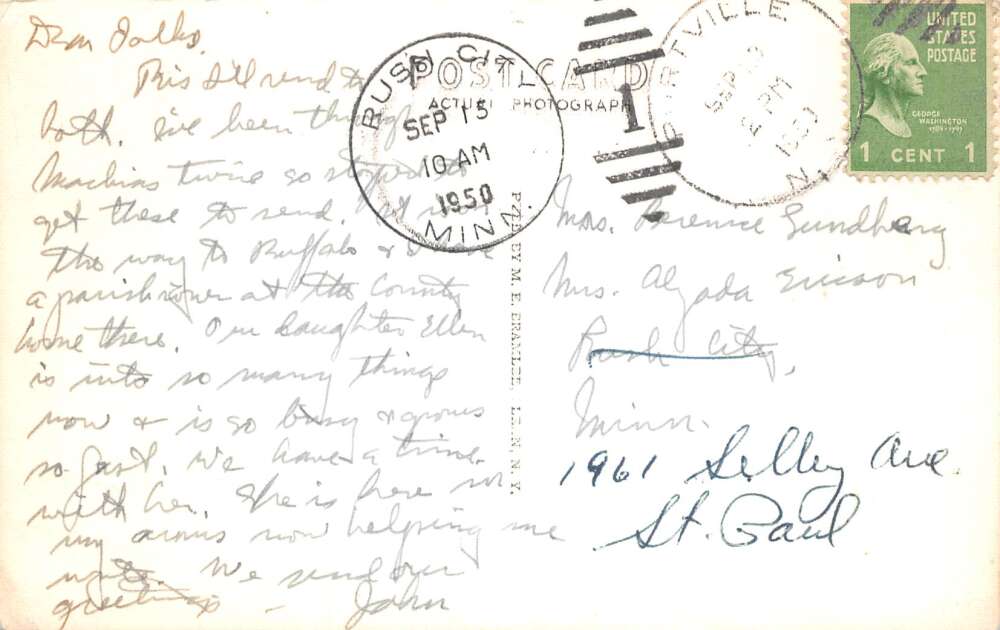 Dear Folks,
This I'll send to
both. I've been through
Machias twice so stopped to
get these to send. I'm on
the way to Buffalo &
a parishioner at the County
home there. Our daughter Ellen
is into so many things
now & is so busy & grows
so fast. We have a time
with her. She is here in
my arms now helping me
write. We send our
greetings - John
POST CARD
ACTUAL PHOTOGRAPH
RUSH CITY
SEP 15
10 AM
1950
MINN.
1
PORTVILLE
SEP
PM
1950
N.Y.
UNITED
STATES
POSTAGE
GEORGE
WASHINGTON
1789-1797
1 CENT 1
PUB. BY M. E. N. Y.
Mrs. Berenice Sundberg
Mrs. Algoda Ericson
Rush City,
Minn.
1961 Selby Ave.
St. Paul